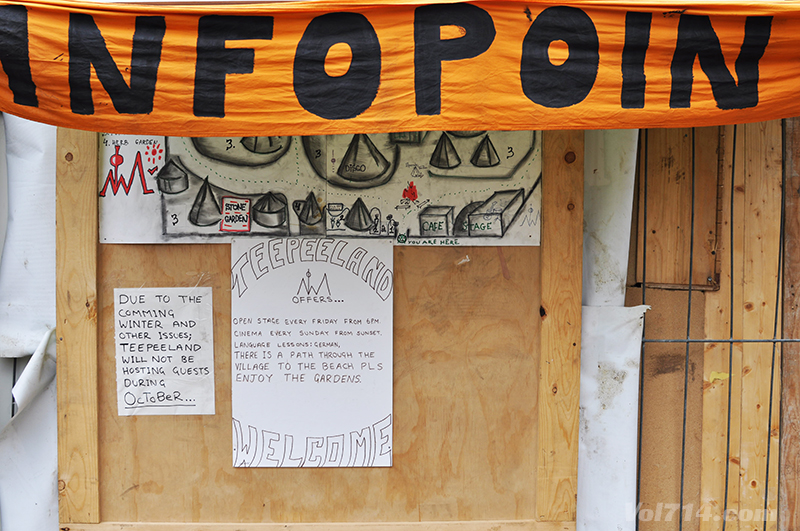 INFOPOIN
4. HERB GARDEN
3.
DISCO
3.
3
STONE
GARDEN
CAFE
STAGE
YOU ARE HERE
TEEPEELAND
OFFERS...
OPEN STAGE EVERY FRIDAY FROM 6PM.
CINEMA EVERY SUNDAY FROM SUNSET.
LANGUAGE LESSONS: GERMAN,
THERE IS A PATH THROUGH THE
VILLAGE TO THE BEACH PLS
ENJOY THE GARDENS.
WELCOME
DUE TO THE
COMMING
WINTER AND
OTHER ISSUES;
TEEPEELAND
WILL NOT BE
HOSTING GUESTS
DURING
OCTOBER...
Vol714.com